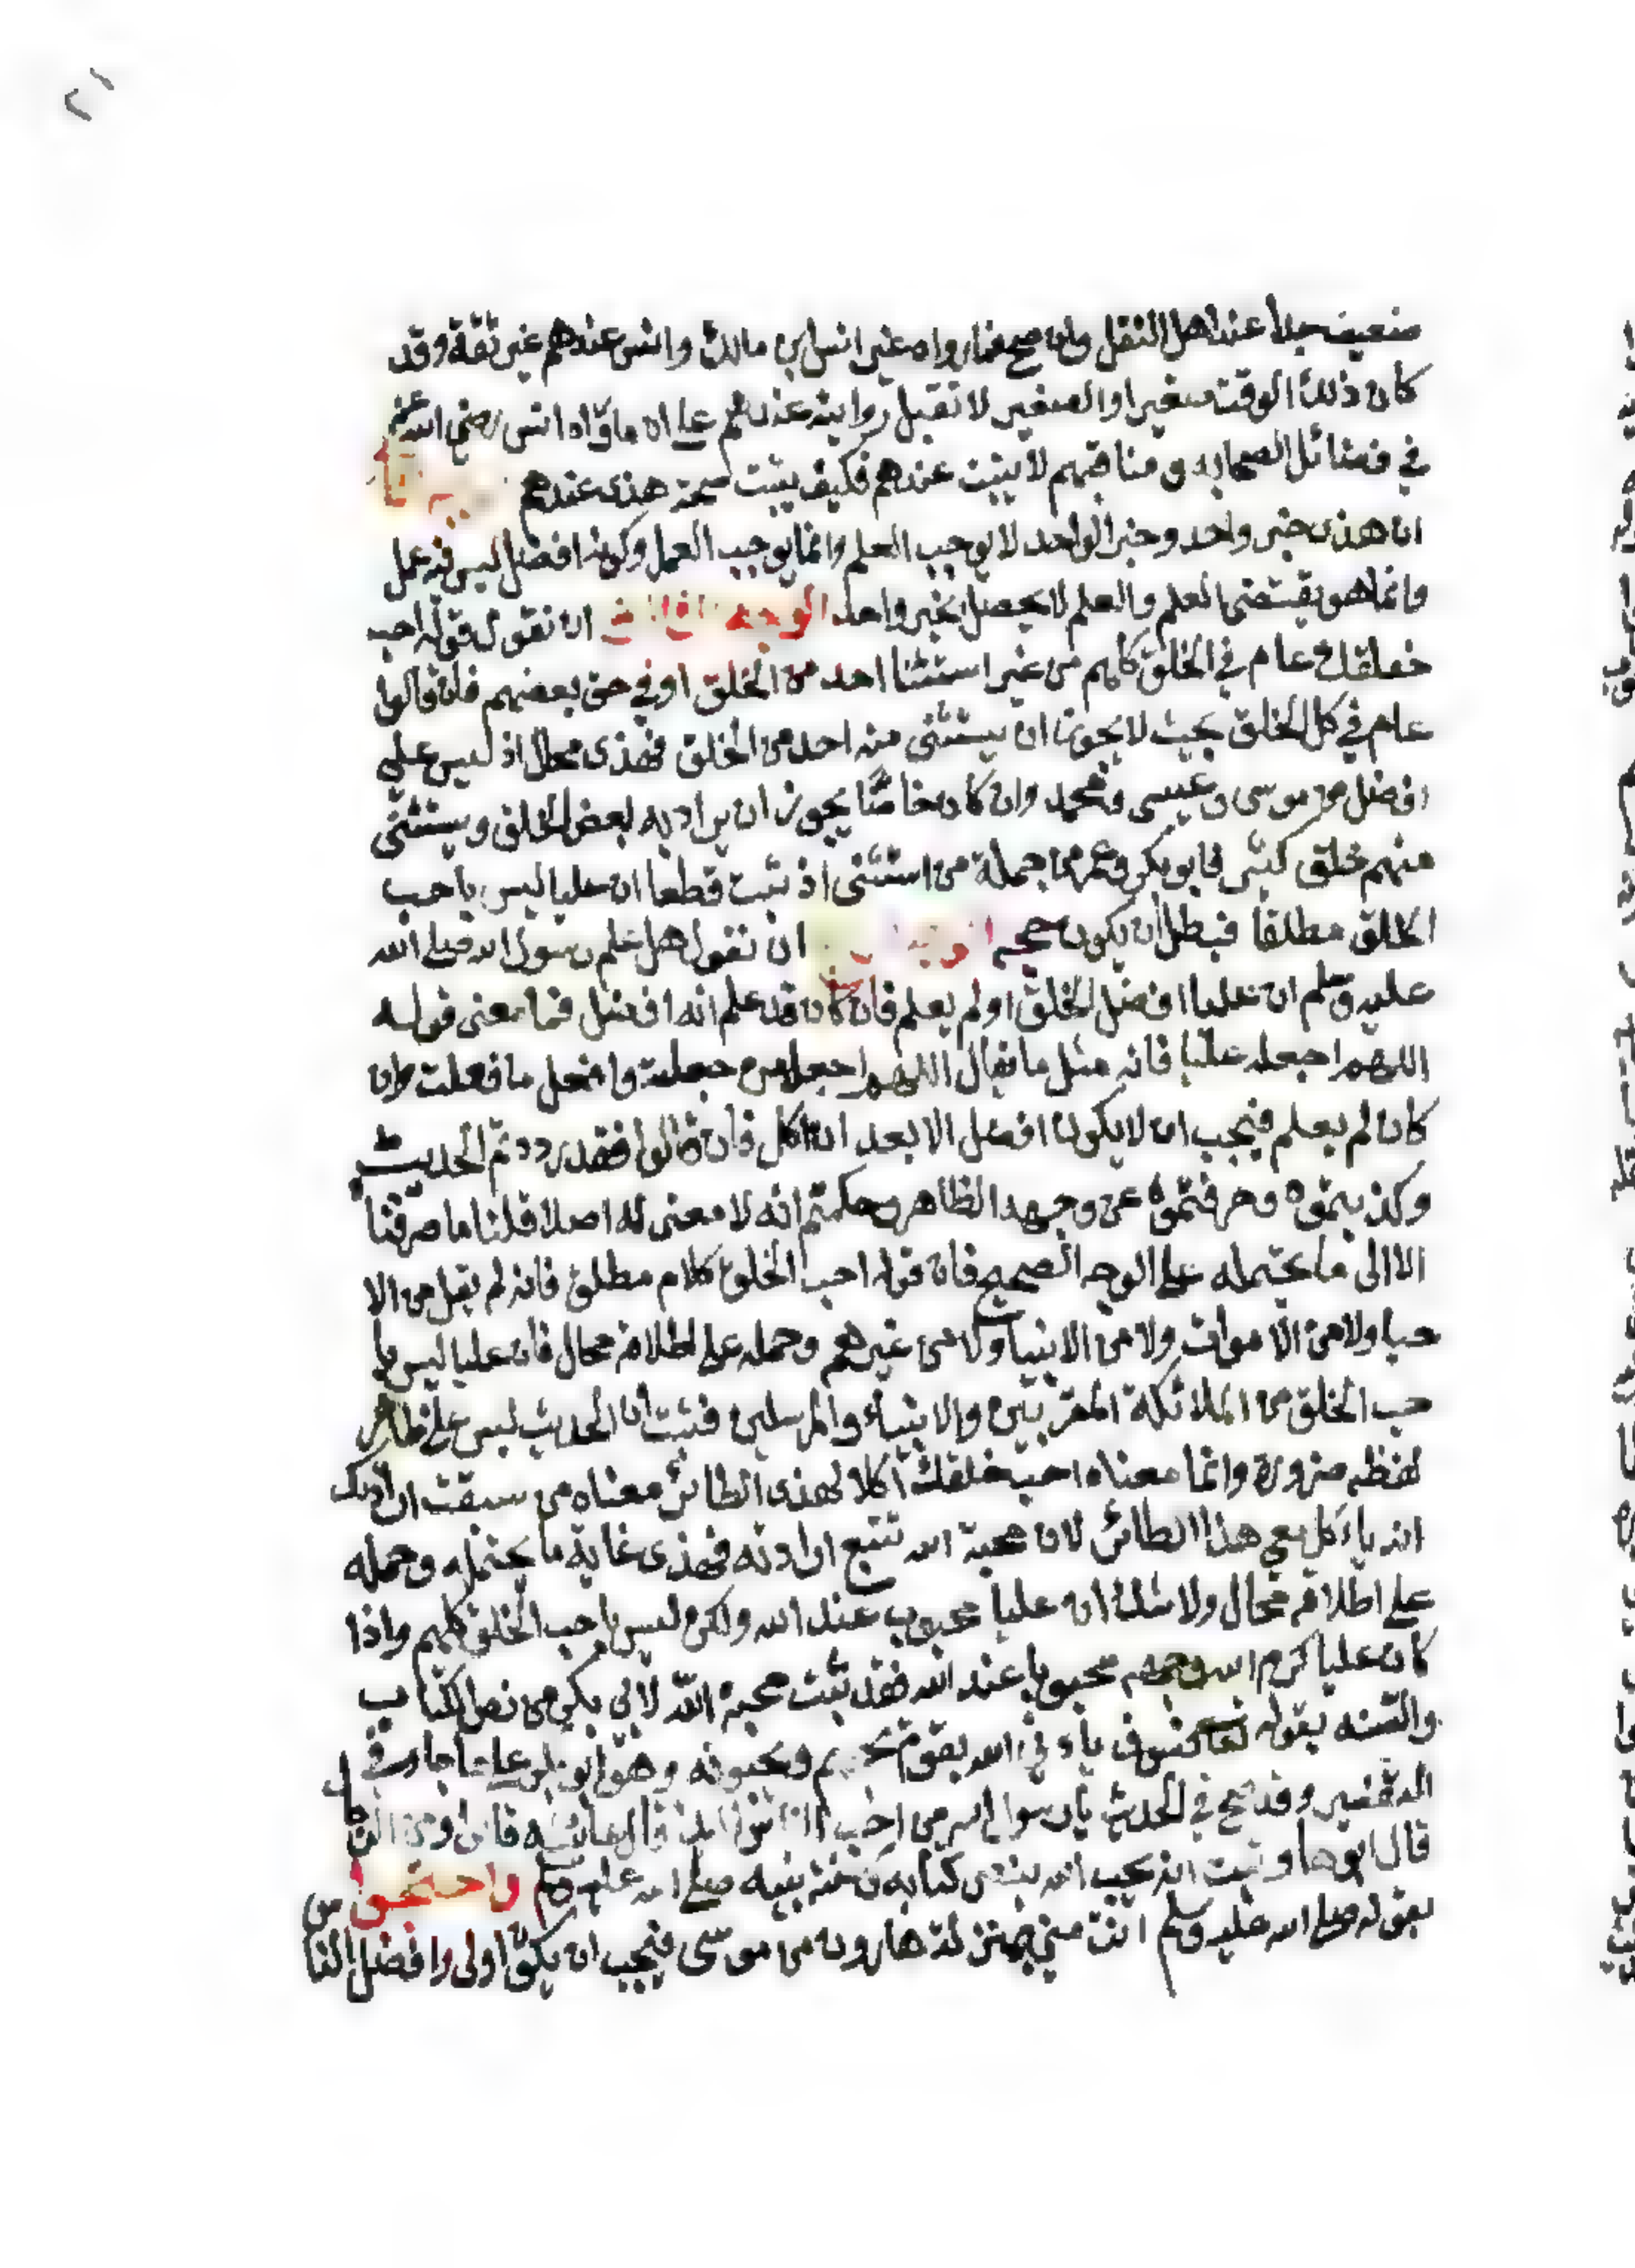 ٢١
ضعيف جدا عند اهل النقل وان صح فما رواه غير انس ابن مالك وانس عندهم غير ثقة وقد
كان ذلك الوقت صغيرا والصغير لا تقبل روايته عندهم على ان ما رواه انس رضي الله عنه
في فضائل الصحابه ومناقبهم لا يثبت عندهم فكيف يثبت صحة هذى عندهم
ان هذى خبر واحد وخبر الواحد لا يوجب العلم وانما يوجب العمل وكونه افضل ليس فيه عمل
وانما هو يقتضى العلم والعلم لا يحصل بخبر واحد الوجه الثالث ان نقول قوله احب
خلقك عام في الخلق كلهم من غير استثنا احد من الخلق او في حق بعضهم فان قالوا
عام في كل الخلق بحيث لا يجوز ان يستثنى منه احد من الخلق فهذى محال اذ ليس علي
افضل من موسى وعيسى ومحمد وان كان خاصا يجوز ان يراد به بعض الخلق ويستثنى
منهم خلق كثير فابو بكر وعمر من جملة من استثنى اذ ثبت قطعا ان عليا ليس باحب
الخلق مطلقا فبطل ان يكون حجم ان نقول هل علم رسول الله صلى الله
عليه وسلم ان عليا افضل الخلق او لم يعلم فان كان قد علم انه افضل فما معنى قوله
اللهم اجعله عليا فانه مثل ما يقال اللهم اجعل من جعلت وافعل ما فعلت وان
كان لم يعلم فيجب ان لا يكون افضل الا بعد ان اكل فان قالوا فقد رددتم الحديث
وكذبتموه وحرفتموه عن وجهه الظاهر وحكمتم انه لا معنى له اصلا قلنا ما صرفنا
الا الى ما يحتمله على الوجه الصحيح فان قوله احب الخلق كلام مطلق فانه لم يقل من الا
حيا ولا من الاموات ولا من الانبيا ولا من غيرهم وحمله على اطلاقه محال فان عليا ليس با
حب الخلق من الملائكة المقربين والانبياء والمرسلين فثبت ان الحديث ليس على ظاهر
لفظه ضرورة وانما معناه احب خلقك اكلا لهذى الطائر معناه من سبقت ارادتك
انه ياءكل معي هذا الطائر لان محبة الله تتبع ارادته فهذى غاية ما يحتمله وحمله
على اطلاقه محال ولا شك ان عليا محبوب عند الله ولكن ليس باحب الخلق كلهم واذا
كان عليا كرم الله وجهه محبوبا عند الله فقد ثبت محبة الله لابي بكر من نص الكتاب
والسنه بقوله تعا فسوف ياءتي الله بقوم يحبهم ويحبونه وهو ابو بكر على ما جاء في
التفسير وقد صح في الحديث يا رسول الله من احب الناس اليك قال عائشه قلن ومن الرجال
قال ابوها وثبت انه يحب الله بنص كتابه وسنة نبيه صلى الله عليه وسلم واحتجوا
بقوله صلى الله عليه وسلم انت مني بمنزلة هارون من موسى فيجب ان يكون اولى وافضل النا